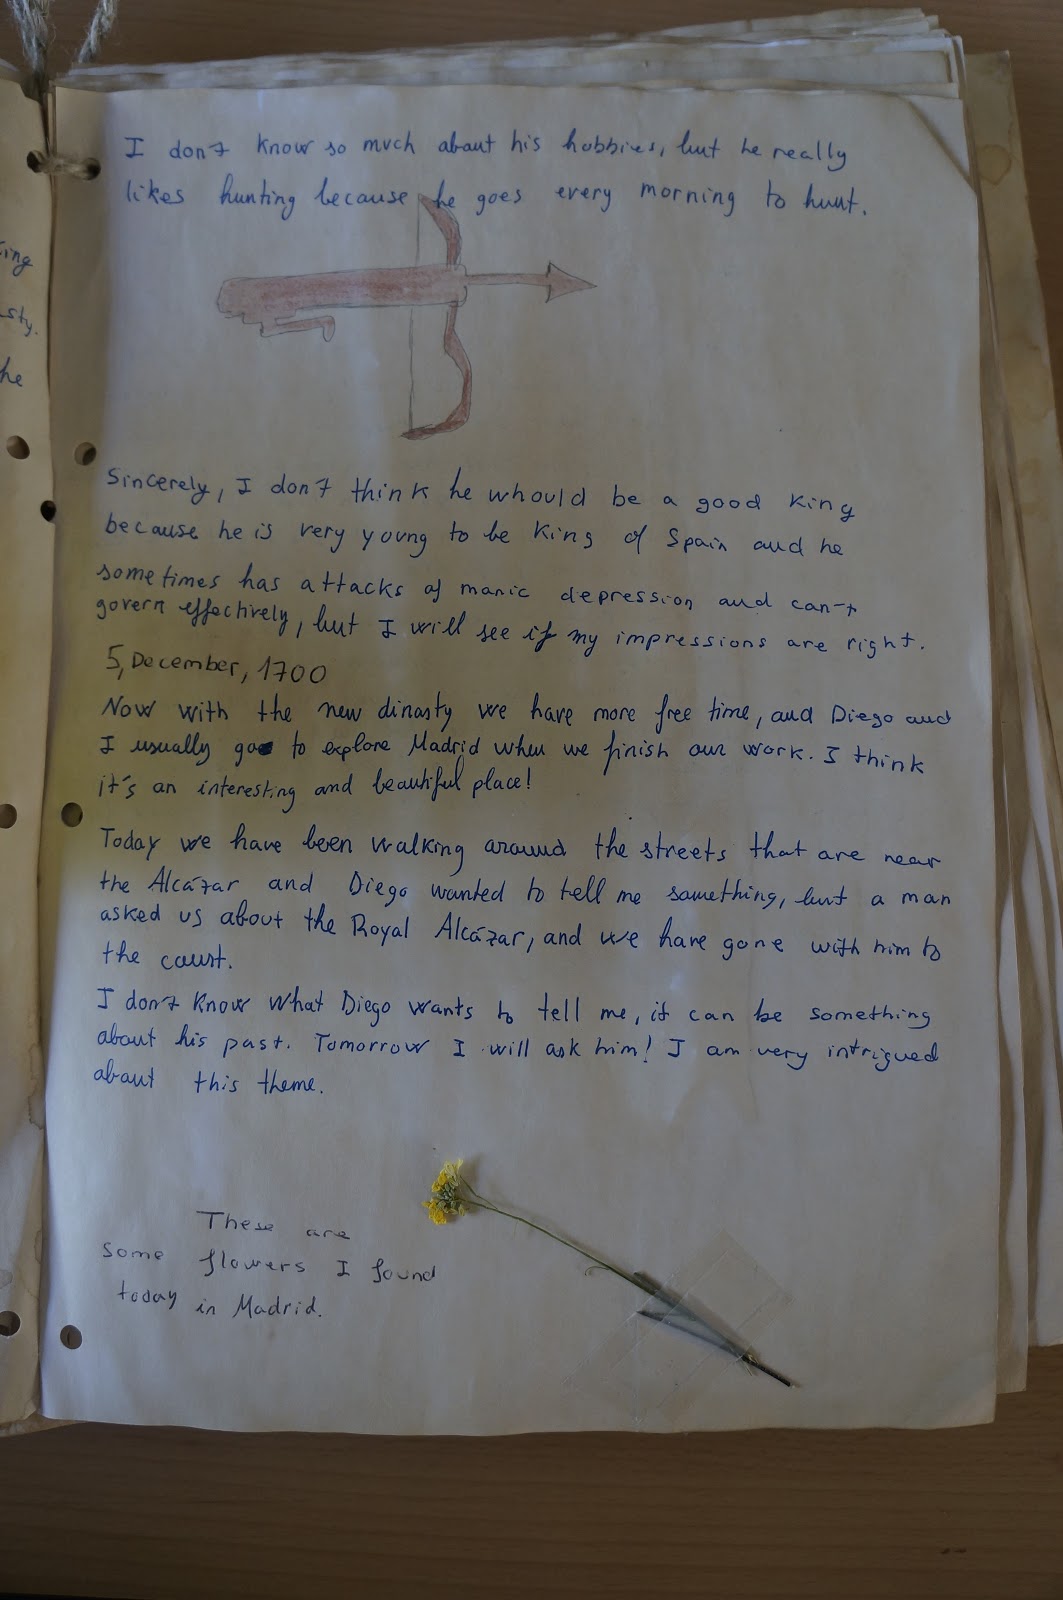 I don't know so much about his hobbies, but he really
likes hunting because he goes every morning to hunt.
Sincerely, I don't think he whould be a good King
because he is very young to be King of Spain and he
sometimes has attacks of manic depression and can't
govern effectively, but I will see if my impressions are right.
5, December, 1700
Now with the new dinasty we have more free time, and Diego and
I usually go to explore Madrid when we finish our work. I think
it's an interesting and beautiful place!
Today we have been walking around the streets that are near
the Alcázar and Diego wanted to tell me something, but a man
asked us about the Royal Alcázar, and we have gone with him to
the court.
I don't know what Diego wants to tell me, it can be something
about his past. Tomorrow I will ask him! I am very intrigued
about this theme.
These are
some flowers I found
today in Madrid.
he